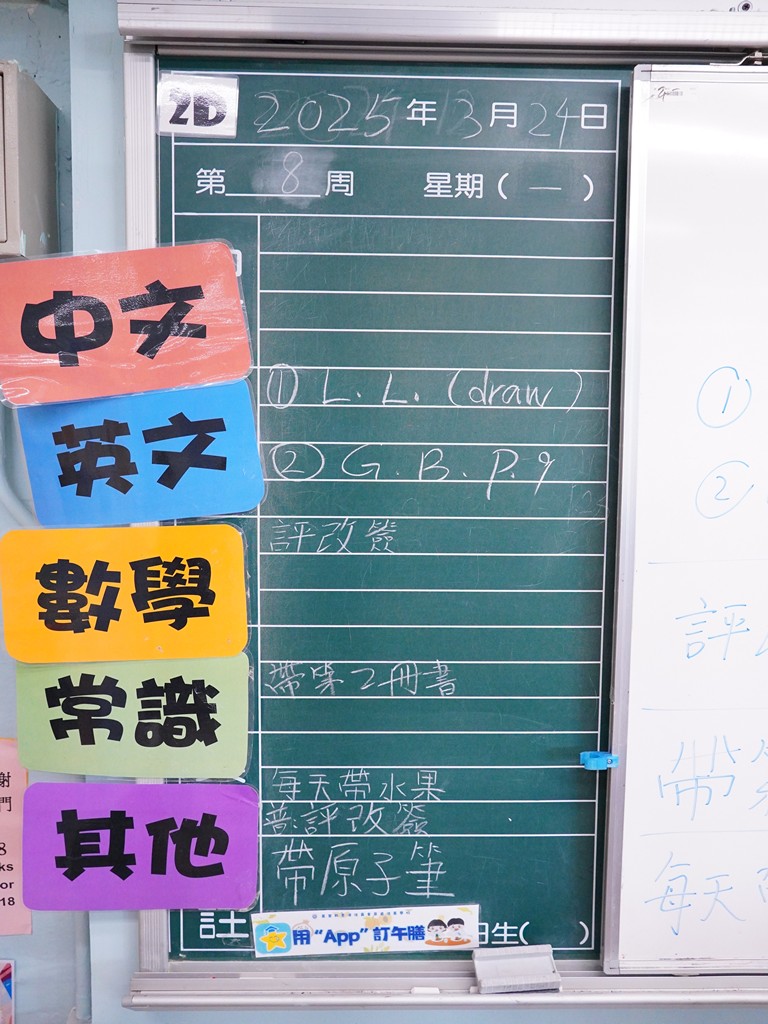 2D 2025年3月24日
第 8 周 星期(一)
中文
英文
① L. L. (draw)
② G. B. p. 9
數學
評改簽
常識
帶第2冊書
其他
每天帶水果
普:評改簽
帶原子筆
用“App”訂午膳
生( )
①
②
評
帶
每天
謝
門
8
ks
or
18